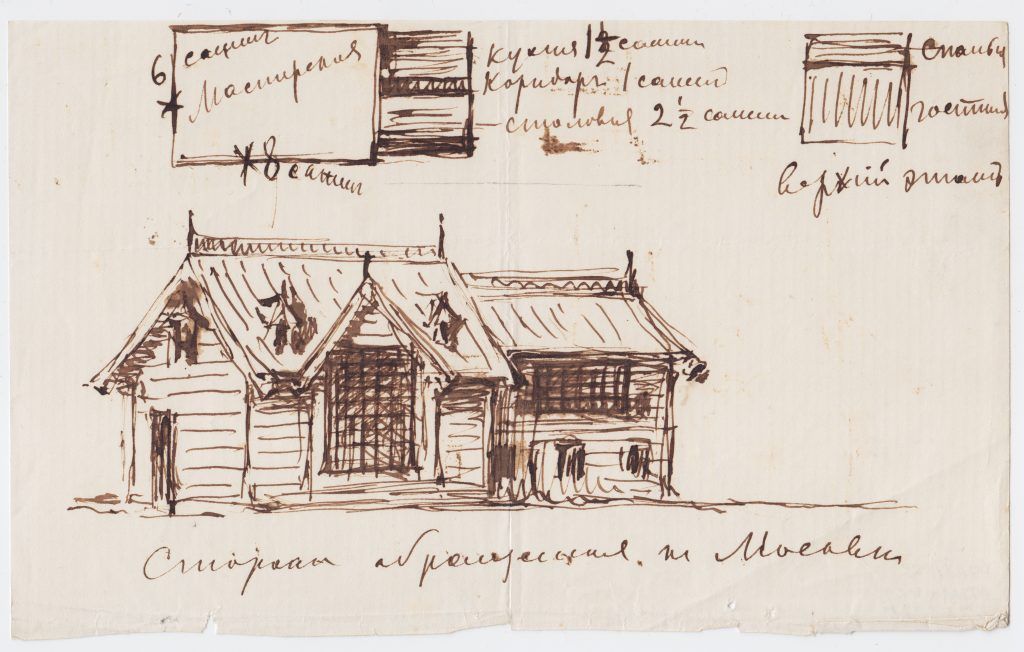 6 сажин
Мастерская
8 сажин
Кухня 1½ сажин
Коридоръ 1 сажен
столовая 2½ сажин
спальн
гостиная
верхий этажъ
Сторона обращенная к Москвы